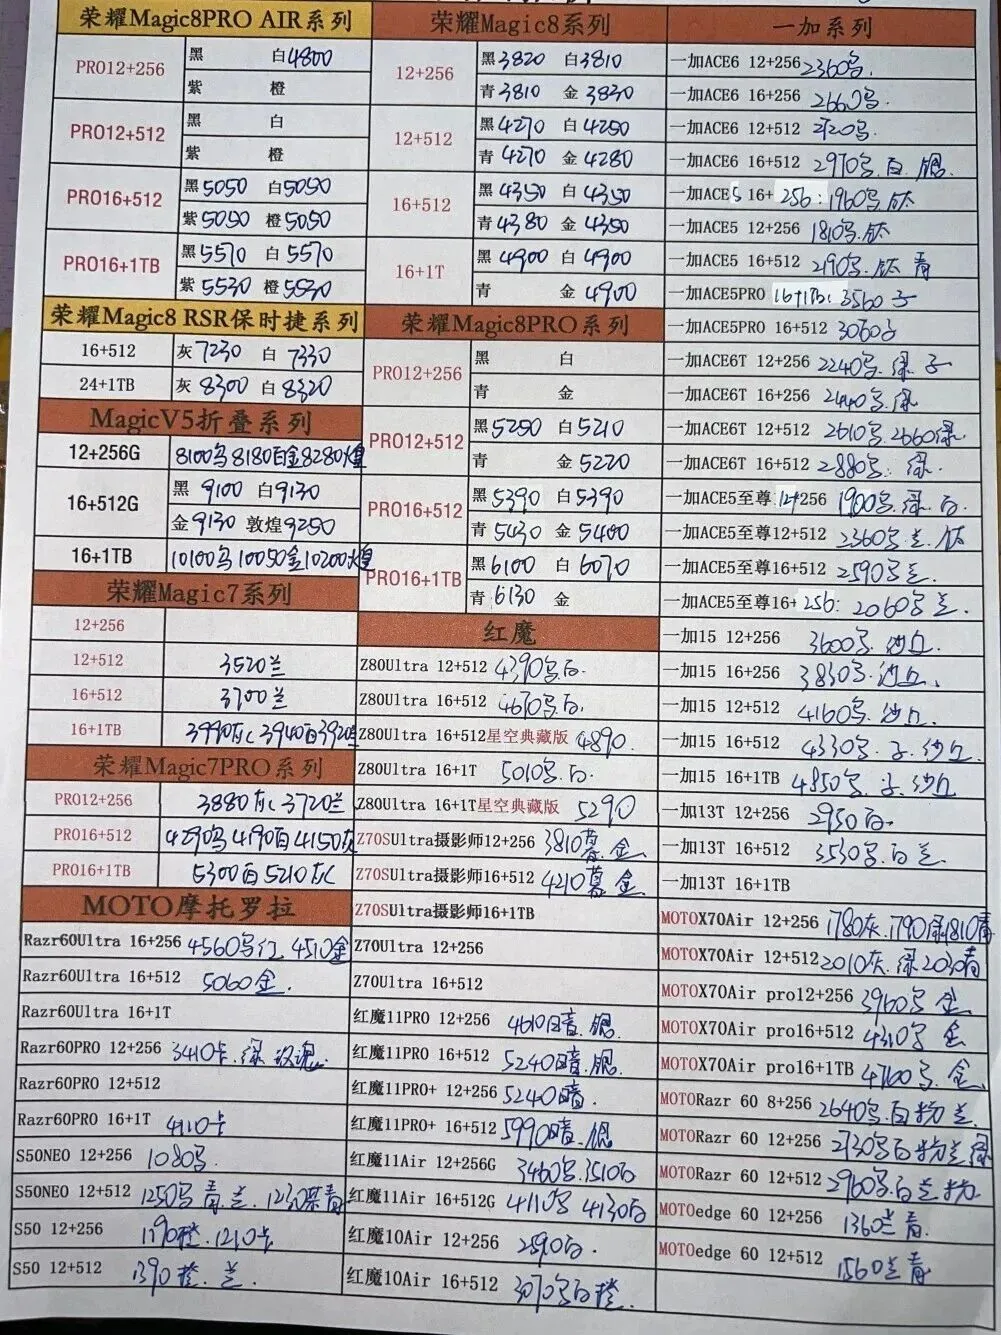 荣耀Magic8PRO AIR系列
PRO12+256 黑 白4800
紫 橙
PRO12+512 黑 白
紫 橙
PRO16+512 黑5050 白5050
紫5050 橙5050
PRO16+1TB 黑5570 白5570
紫5530 橙5530
荣耀Magic8 RSR保时捷系列
16+512 灰7230 白7330
24+1TB 灰8300 白8320
MagicV5折叠系列
12+256G 8100乌8180白金8280煌
16+512G 黑9100 白9130
金9130 敦煌9250
16+1TB 10100乌10050金10200煌
荣耀Magic7系列
12+256
12+512 3520兰
16+512 3700兰
16+1TB 3990灰 3940白3920
荣耀Magic7PRO系列
PRO12+256 3880灰 3720兰
PRO16+512 4290乌4190白4150灰
PRO16+1TB 5300白5210灰
MOTO摩托罗拉
Razr60Ultra 16+256 4560乌红 4510金
Razr60Ultra 16+512 5060金.
Razr60Ultra 16+1T
Razr60PRO 12+256 3410卡.绿 玫瑰.
Razr60PRO 12+512
Razr60PRO 16+1T 4110卡
S50NEO 12+256 1080乌.
S50NEO 12+512 1250乌 青.兰.1230紫青
S50 12+256 1190橙.1210卡
S50 12+512 1390橙.兰.
荣耀Magic8系列
12+256 黑3820 白3810
青3810 金3830
12+512 黑4270 白4250
青4270 金4280
16+512 黑4350 白4350
青4380 金4350
16+1T 黑4900 白4900
青 金4900
荣耀Magic8PRO系列
PRO12+256 黑 白
青 金
PRO12+512 黑5250 白5210
青 金5220
PRO16+512 黑5390 白5390
青5430 金5400
PRO16+1TB 黑6100 白6070
青6130 金
红魔
Z80Ultra 12+512 4390乌白
Z80Ultra 16+512 4670乌白.
Z80Ultra 16+512星空典藏版 4890.
Z80Ultra 16+1T 5010乌.白.
Z80Ultra 16+1T星空典藏版 5290
Z70SUltra摄影师12+256 3810暮.金
Z70SUltra摄影师16+512 4210暮 金.
Z70SUltra摄影师16+1TB
Z70Ultra 12+256
Z70Ultra 16+512
红魔11PRO 12+256 4610暗.银.
红魔11PRO 16+512 5240暗.银.
红魔11PRO+ 12+256 5240暗.
红魔11PRO+ 16+512 5990暗.银
红魔11Air 12+256G 3460乌.3510白
红魔11Air 16+512G 4110乌 4130白
红魔10Air 12+256 2890白.
红魔10Air 16+512 3070乌白橙.
一加系列
一加ACE6 12+256 2360乌.
一加ACE6 16+256 2660乌.
一加ACE6 12+512 2720乌.
一加ACE6 16+512 2970乌.白.银.
一加ACE5 16+256:1960乌.钛
一加ACE5 12+256 1810乌.钛
一加ACE5 16+512 2190乌.钛 青
一加ACE5PRO 16+1TB:3560子
一加ACE5PRO 16+512 3060子
一加ACE6T 12+256 2240乌.绿 子
一加ACE6T 16+256 2440乌.绿
一加ACE6T 12+512 2610乌.2660绿.
一加ACE6T 16+512 2880乌.绿.
一加ACE5至尊12+256 1900乌.绿.白.
一加ACE5至尊12+512 2360乌兰.钛
一加ACE5至尊16+512 2590乌兰.
一加ACE5至尊16+256:2060乌兰.
一加15 12+256 3600乌.沙丘
一加15 16+256 3830乌.沙丘.
一加15 12+512 4160乌.沙丘
一加15 16+512 4330乌.子.沙丘
一加15 16+1TB 4850乌.子.沙丘
一加13T 12+256 2950白.
一加13T 16+512 3530乌.白兰.
一加13T 16+1TB
MOTOX70Air 12+256 1780灰.1790绿1810青
MOTOX70Air 12+512 2010灰.绿2030青
MOTOX70Air pro12+256 3960乌 金.
MOTOX70Air pro16+512 4310乌 金
MOTOX70Air pro16+1TB 4760乌.金.
MOTORazr 60 8+256 2640乌.白粉兰.
MOTORazr 60 12+256 2730乌白粉兰绿
MOTORazr 60 12+512 2960乌.白兰粉
MOTOedge 60 12+256 1360兰青.
MOTOedge 60 12+512 1560兰青